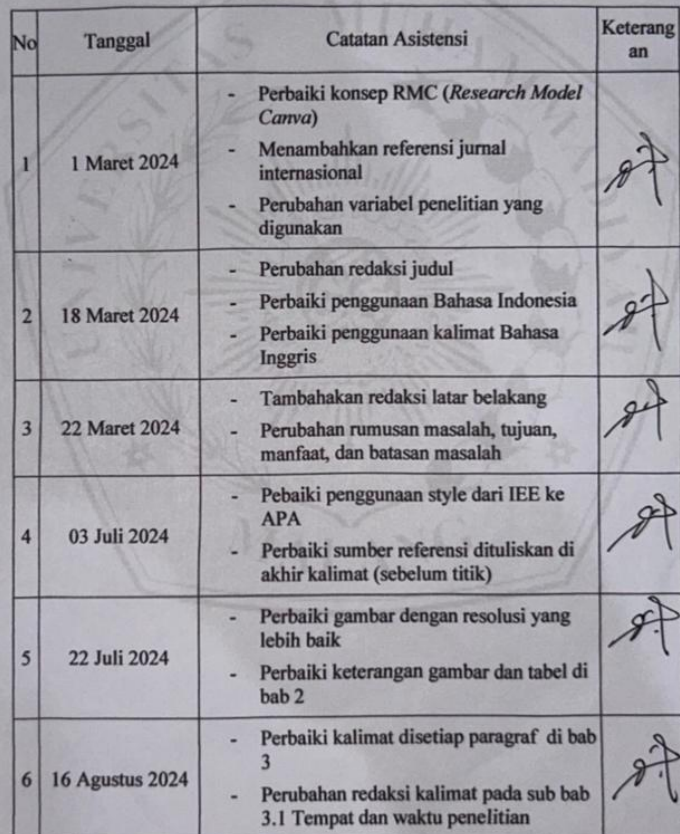 No Tanggal Catatan Asistensi Keterang
an
1 1 Maret 2024
- Perbaiki konsep RMC (Research Model
Canva)
- Menambahkan referensi jurnal
internasional
- Perubahan variabel penelitian yang
digunakan
2 18 Maret 2024
- Perubahan redaksi judul
- Perbaiki penggunaan Bahasa Indonesia
- Perbaiki penggunaan kalimat Bahasa
Inggris
3 22 Maret 2024
- Tambahakan redaksi latar belakang
- Perubahan rumusan masalah, tujuan,
manfaat, dan batasan masalah
4 03 Juli 2024
- Pebaiki penggunaan style dari IEE ke
APA
- Perbaiki sumber referensi dituliskan di
akhir kalimat (sebelum titik)
5 22 Juli 2024
- Perbaiki gambar dengan resolusi yang
lebih baik
- Perbaiki keterangan gambar dan tabel di
bab 2
6 16 Agustus 2024
- Perbaiki kalimat disetiap paragraf di bab
3
- Perubahan redaksi kalimat pada sub bab
3.1 Tempat dan waktu penelitian
UNIVERSITAS MUHAMMADIYAH
MALANG